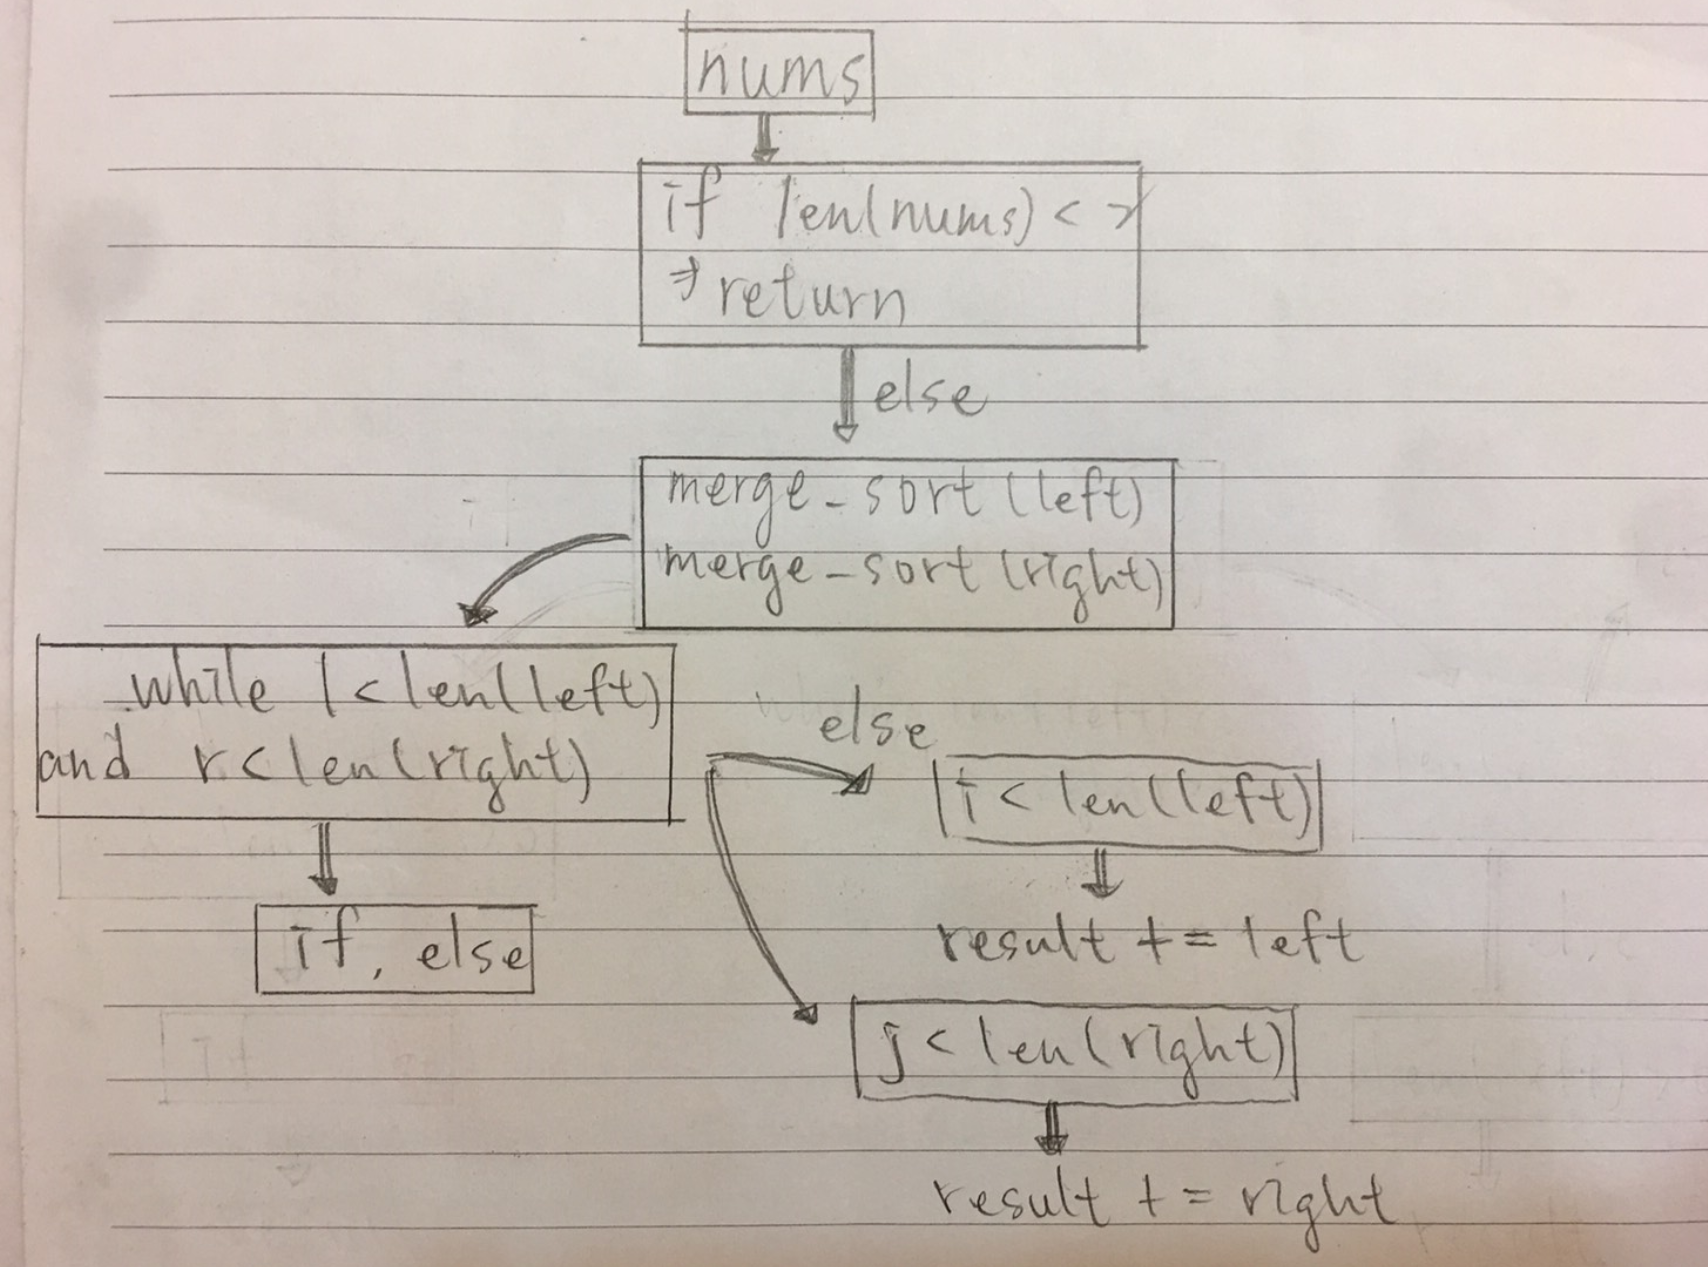 nums
if len(nums) < 2
⇒ return
else
merge-sort (left)
merge-sort (right)
while l < len(left)
and r < len(right)
else
i < len(left)
if, else
result += left
j < len(right)
result += right